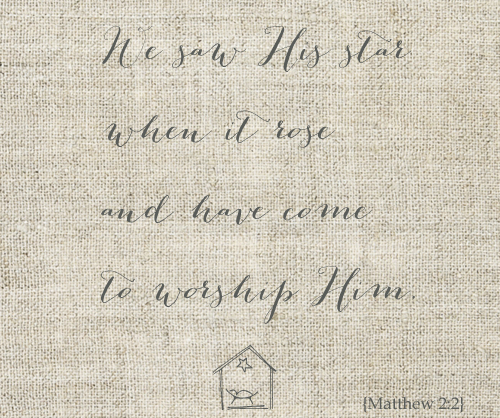 We saw His star
when it rose
and have come
to worship Him.
{Matthew 2:2}